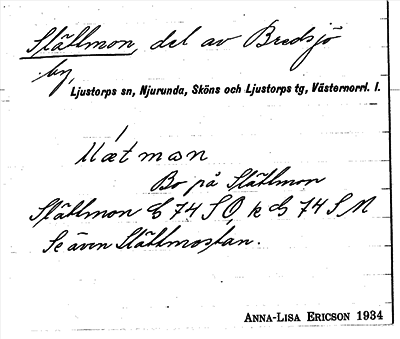 Slättmon, del av Bredsjö
by,
Ljustorps sn, Njurunda, Sköns och Ljustorps tg, Västernorrl. l.
Bo på Slättmon
Slättmon E 74 SO, k E 74 SM
Se även Slättmostan.
ANNA-LISA ERICSON 1934